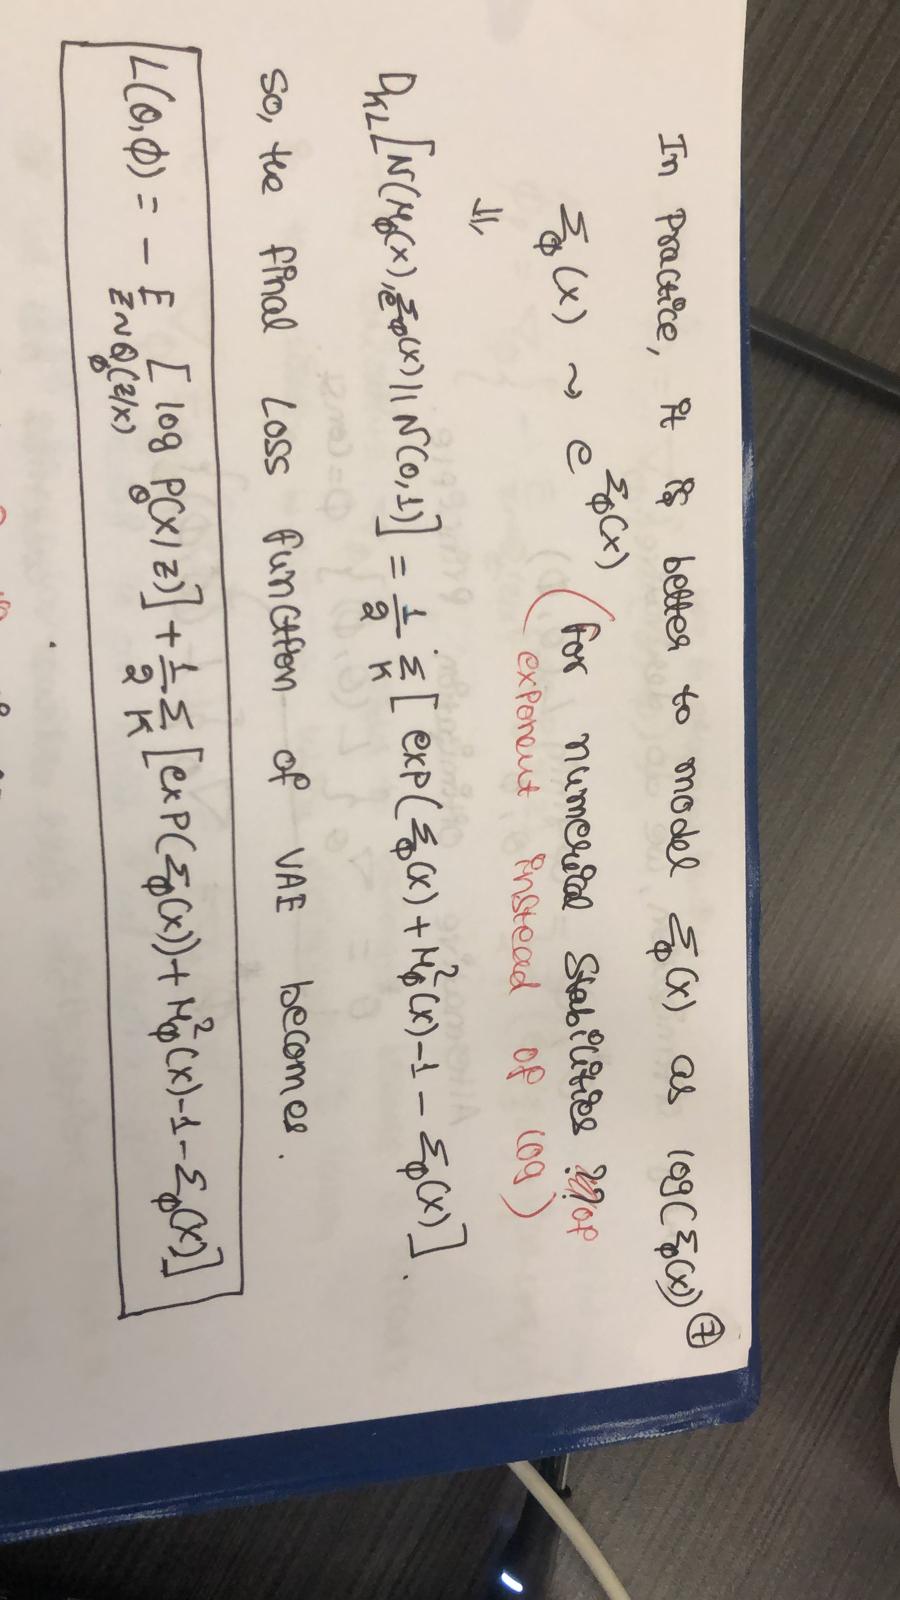 In Practice, it is better to model Σ_ϕ(x) as log(Σ_ϕ(x)) ⑦
Σ_ϕ(x) ~ e^{Σ_ϕ(x)} (for numerical Stabilities
exponent instead of log)
⇓
D_KL [N(μ_ϕ(x), Σ_ϕ(x) || N(0,1)] = 1/2 Σ_K [exp(Σ_ϕ(x) + μ_ϕ^2(x) - 1 - Σ_ϕ(x)].
So, the final Loss function of VAE becomes.
L(θ,ϕ) = - E_{z~Q_ϕ(z/x)} [log P_θ(x/z)] + 1/2 Σ_K [exp(Σ_ϕ(x)) + μ_ϕ^2(x) - 1 - Σ_ϕ(x)]